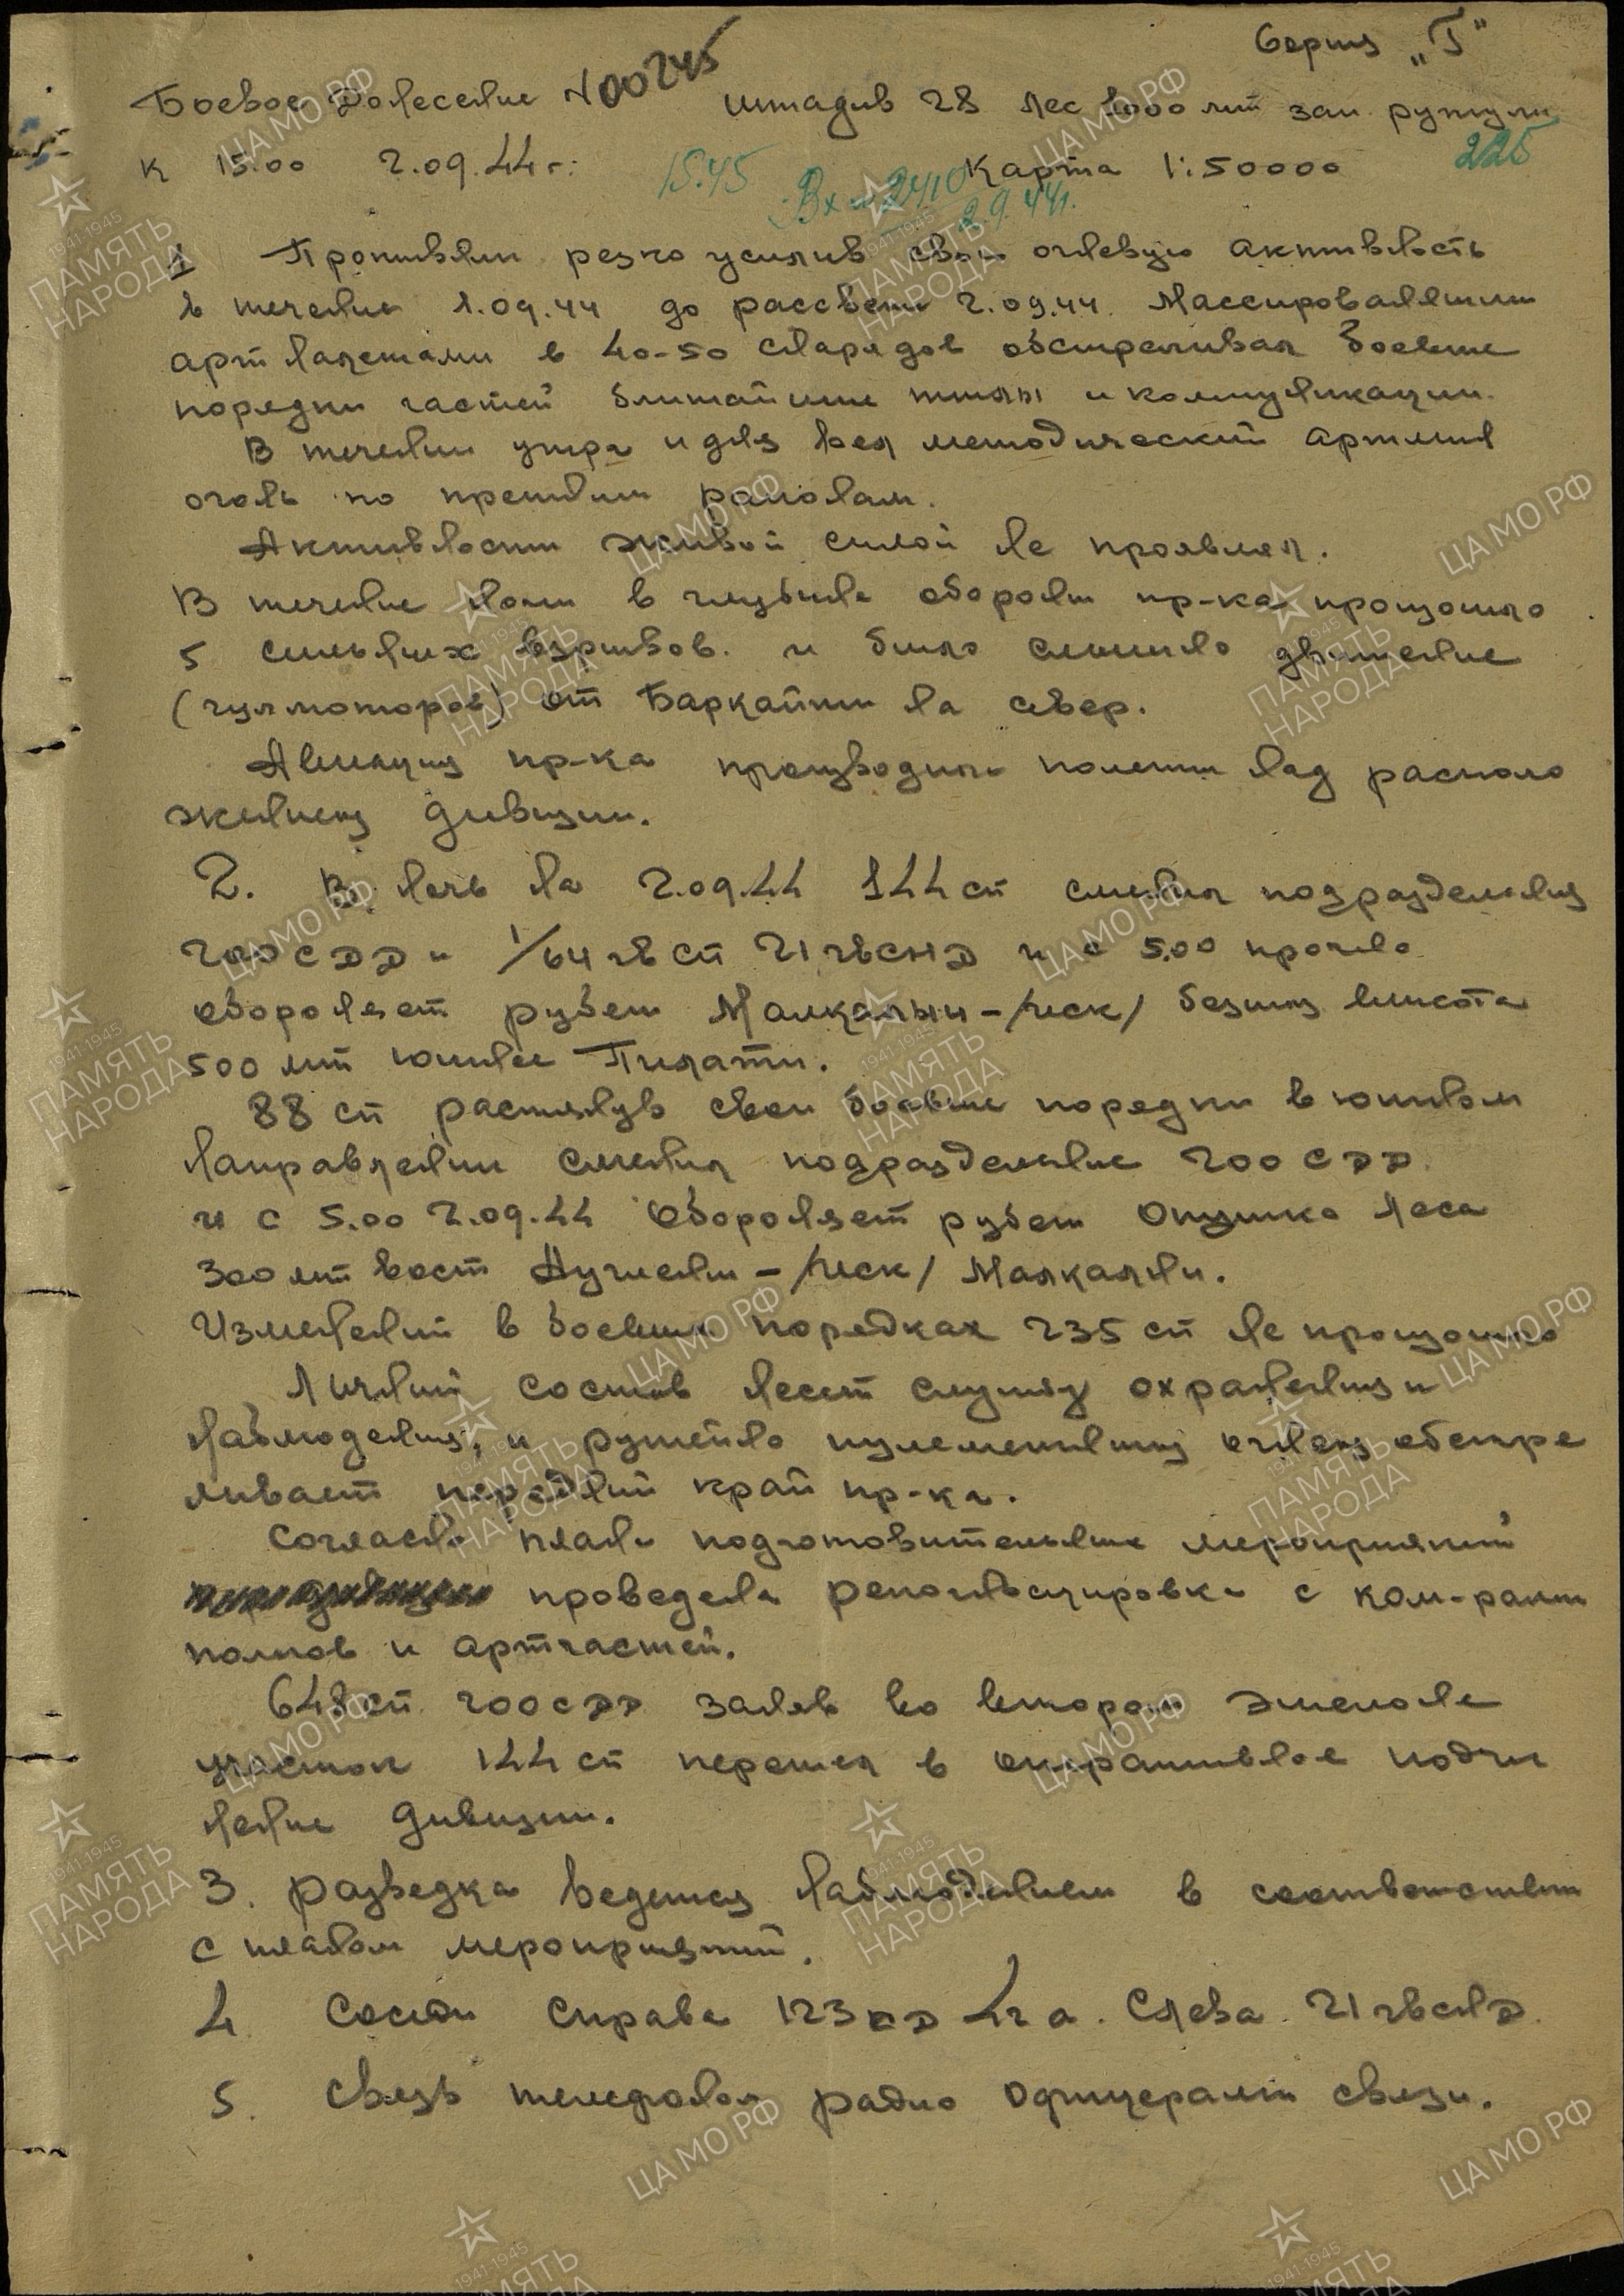 Серия „Г"
Боевое Донесение N00245 Штадив 28 лес 1000 мт зап. ружули
к 15.00 2.09.44 г. 15.45 Вх 2410 Карта 1:50000 225
2.9.44г.
1 Противник резко усилив свою огневую активность
в течение 1.09.44 до рассвета 2.09.44. Массированными
арт налетами в 40-50 снарядов обстреливал боевые
порядки частей ближайшие тылы и коммуникации.
В течении утра и дня вел методический артмин
огонь по прежним районам.
Активности живой силой не проявлял.
В течение ночи в глубине обороны пр-ка произошло
5 сильных взрывов. и было слышно движение
(гул моторов) от Баркайши на север.
Авиация пр-ка производила полеты над располо
жением дивизии.
2. В ночь на 2.09.44 144 сп сменил подразделения
200 СДД и 1/64 гв сп 21 гвснД и с 5.00 прочно
обороняет рубеж Малкалын -/иск/ безым высота
500 мт южнее Пилати.
88 сп растянув свои боевые порядки в южном
направлении сменил подразделение 200 СДД
и с 5.00 2.09.44 обороняет рубеж Опушка леса
300 мт вост -/иск/ Малкални.
Изменений в боевых порядках 235 сп не произошло
Личный состав несет службу охранения и
наблюдения, и ружейно пулеметным огнем обстре
ливает передний край пр-ка.
Согласно плана подготовительных мероприятий
проведена рекогносцировка с ком-рами
полков и артчастей.
648 сп 200 СДД заняв во втором эшелоне
участок 144 сп перешел в оперативное подчи
нение дивизии.
3. Разведка ведется наблюдением в соответствии
с планом мероприятий.
4 Соседи справа 123 СД 42 а. Слева 21 гвснД.
5. Связь телефоном радио Офицерами связи.
ЦАМО РФ
1941-1945
ПАМЯТЬ
НАРОДА